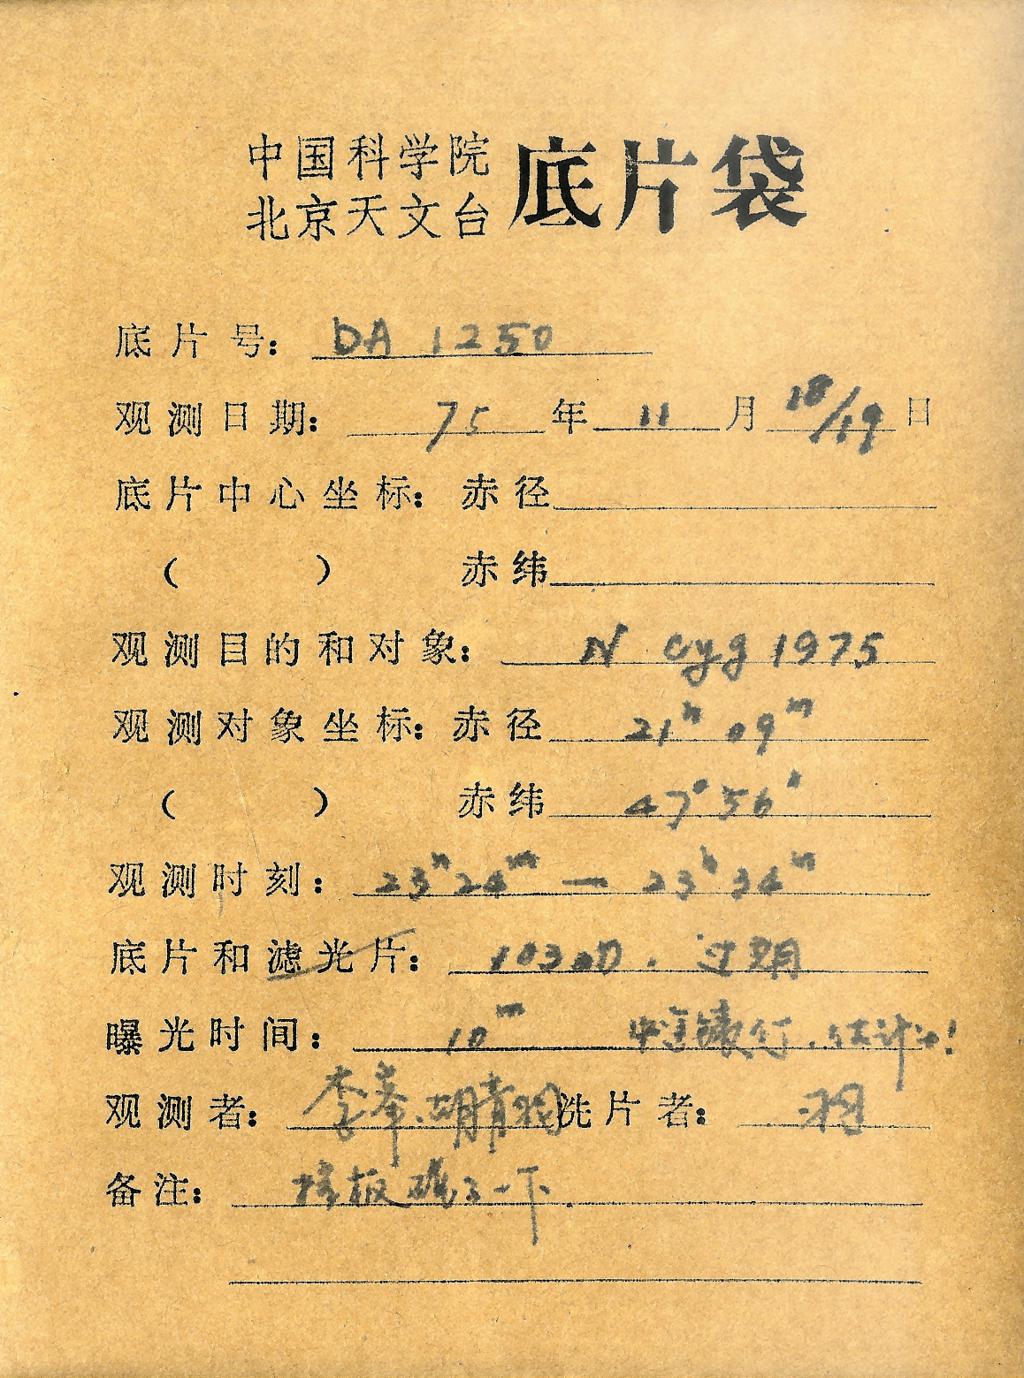 中国科学院
北京天文台
底片袋
底片号： DA 1250
观测日期： 75 年 11 月 18/19 日
底片中心坐标：赤径
（ ） 赤纬
观测目的和对象： N cyg 1975
观测对象坐标：赤径 21h 09m
（ ） 赤纬 47° 56′
观测时刻： 23h 24m — 23h 34m
底片和滤光片： 103aD. 过期
曝光时间： 10m
观测者： 李 胡青羽 洗片者： 羽
备注： 了一下.